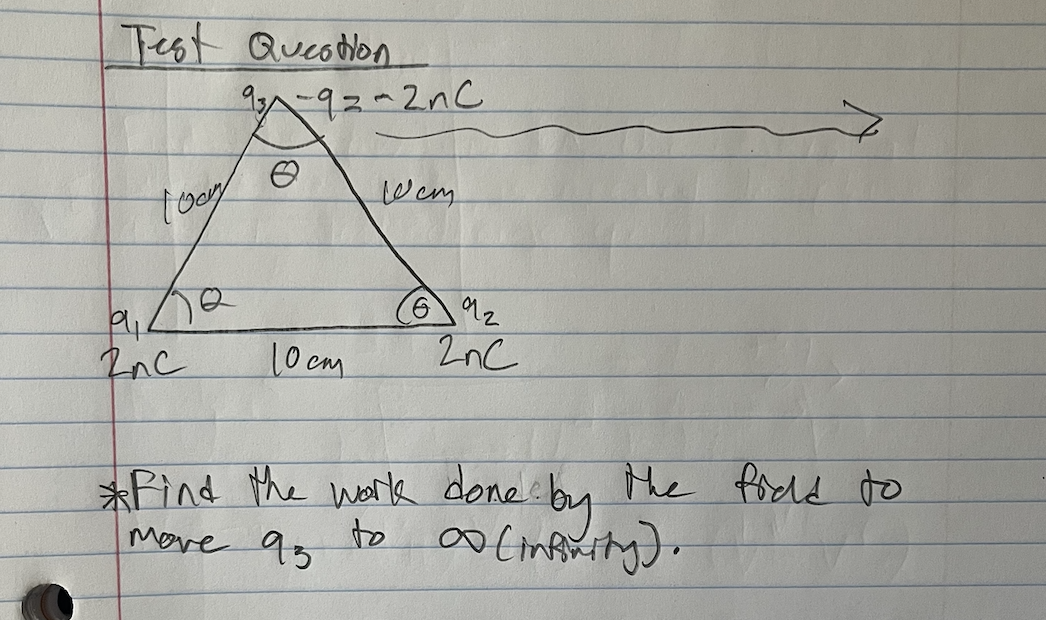 Test Question
q₃ -q = -2nC
θ
10cm 10cm
θ θ
q₁ q₂
2nC 10cm 2nC
*Find the work done by the field to
move q₃ to ∞ (infinity).